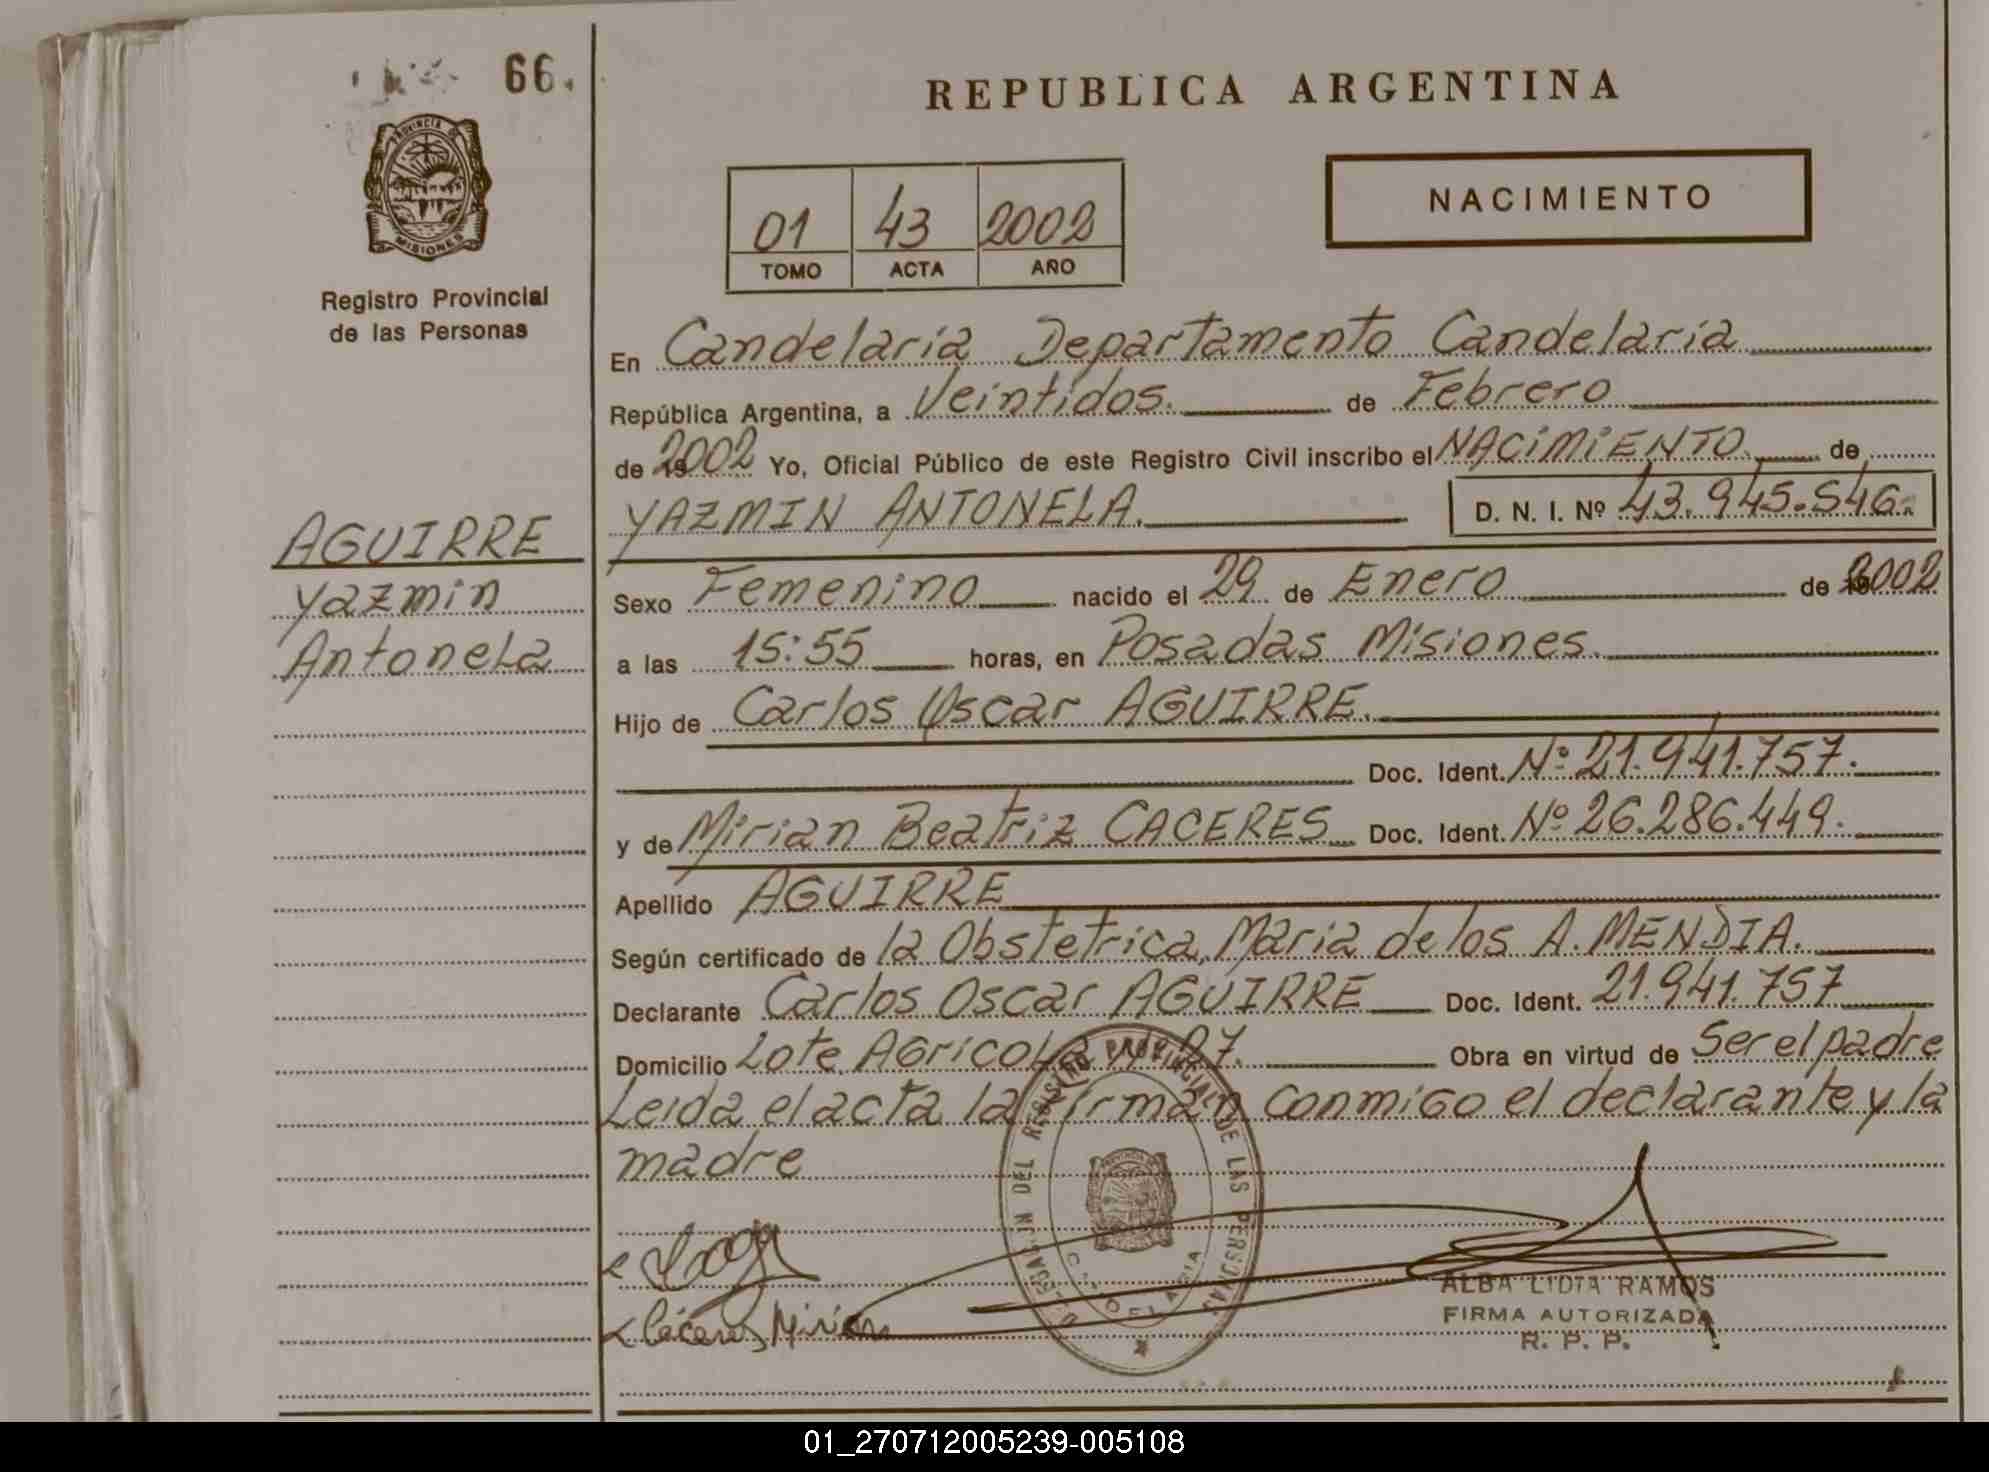 66.
PROVINCIA DE
MISIONES
Registro Provincial
de las Personas
AGUIRRE
Yazmin
Antonela
REPUBLICA ARGENTINA
01 43 2002
TOMO ACTA AÑO
NACIMIENTO
En Candelaria Departamento Candelaria
República Argentina, a Veintidos. de Febrero
de 2002 Yo, Oficial Público de este Registro Civil inscribo el NACIMIENTO de
YAZMIN ANTONELA. D. N. I. Nº 43.945.546.
Sexo Femenino nacido el 29 de Enero de 2002
a las 15:55 horas, en Posadas Misiones.
Hijo de Carlos Oscar AGUIRRE.
Doc. Ident. Nº 21.941.757.
y de Mirian Beatriz CACERES Doc. Ident. Nº 26.286.449.
Apellido AGUIRRE
Según certificado de la Obstetrica, Maria de los A. MENDIA.
Declarante Carlos Oscar AGUIRRE Doc. Ident. 21.941.757
Domicilio Lote Agricola 27. Obra en virtud de Ser el padre
Leida el acta la firman conmigo el declarante y la
madre
REGISTRO PROVINCIAL DE LAS PERSONAS
CANDELARIA
Cáceres Mirian
ALBA LIDIA RAMOS
FIRMA AUTORIZADA
R. P. P.
01_270712005239-005108